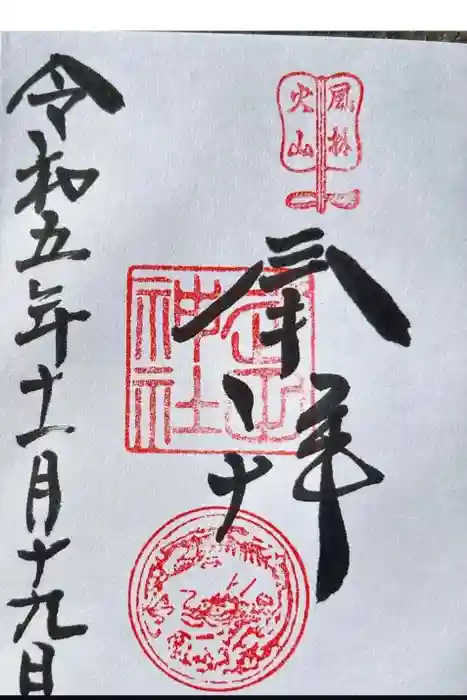 風林
火山
奉拝
武田
神社
令和五年十一月十九日